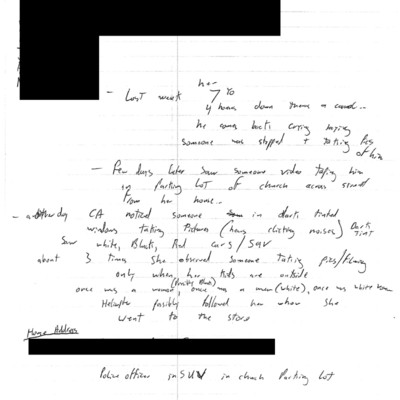 her
- Last week 7 yo
4 homes down
he comes back crying saying
someone was stopped + taking pics
of him
- Few days later saw someone video taping him
in Parking Lot of church across street
from her home -
- another day CA noticed someone in dark tinted
windows taking Pictures (heard clicking noises) Dark Tint
Saw white, Black, Red cars / SUV
about 3 times she observed someone taking pics/filming
only when her kids are outside
once was a woman (Possibly Black), once was a man (white), once was white
Helicopter possibly followed her when she
went to the store
Home Address
Police officer in SUV in church Parking Lot